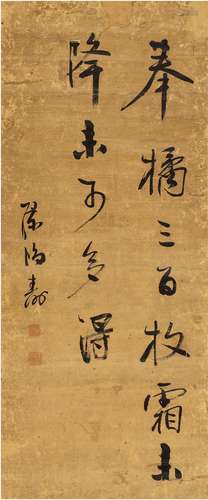 奉橘三百枚霜未
降未可多得
陳鴻壽